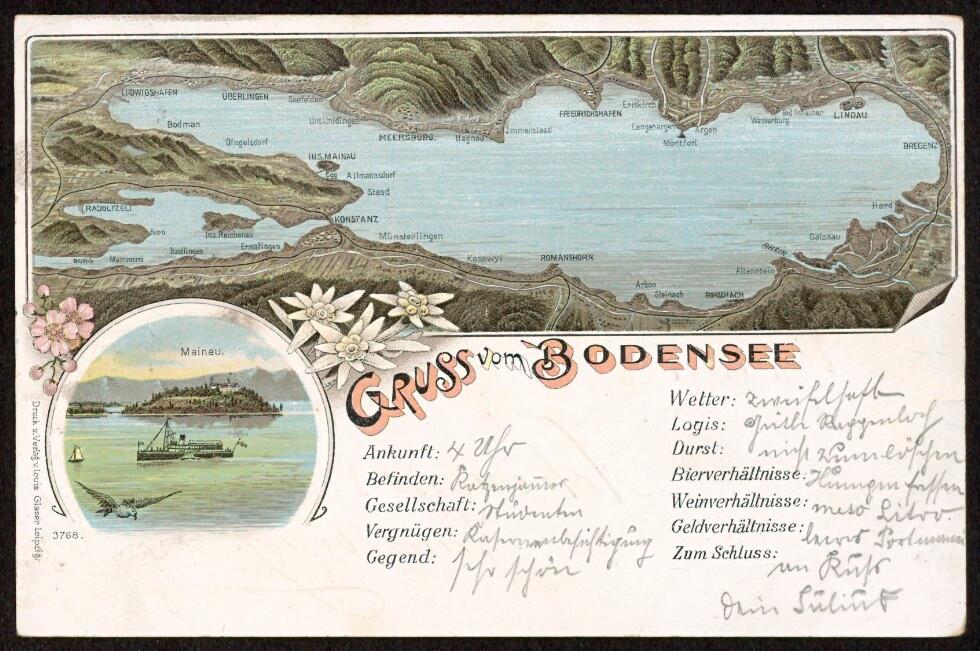 LUDWIGSHAFEN
ÜBERLINGEN
Seefelden
Unt.Uhldingen
Bodman
Dingelsdorf
MEERSBURG
Hagnau
Immenstaad
FRIEDRICHSHAFEN
Eriskirch
Langenargen
Argen
Montfort
Wasserburg
Bad Schachen
LINDAU
BREGENZ
INS.MAINAU
Egg Allmannsdorf
Staad
RADOLFZELL
Horn
Ins. Reichenau
KONSTANZ
Münsterlingen
BURG
Mammern
Ermatingen
Kesswyl
ROMANSHORN
Arbon
Steinach
RORSCHACH
Altenrhein
RHEIN
Gaissau
Hard
Mainau.
GRUSS vom BODENSEE
Ankunft: 4 Uhr
Befinden: Katzenjammer
Gesellschaft: Studenten
Vergnügen: Kasernenbesichtigung
Gegend: sehr schön
Wetter: zweifelhaft
Logis:
Durst: nicht zum löschen
Bierverhältnisse:
Weinverhältnisse:
Geldverhältnisse: leeres
Zum Schluss: Kuß
Dein Julius
Druck u. Verlag v. Louis Glaser Leipzig.
3768.